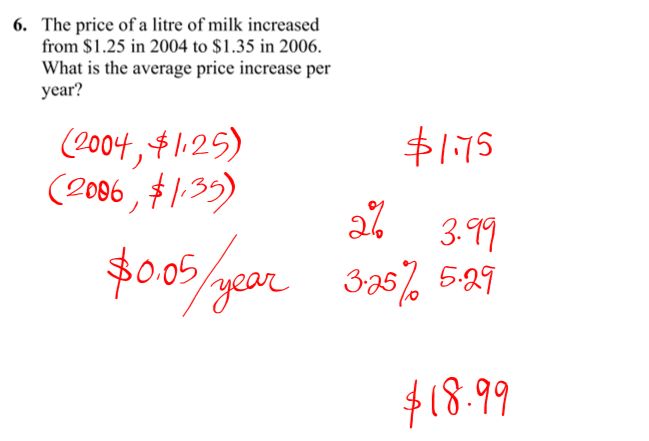 6. The price of a litre of milk increased
from $1.25 in 2004 to $1.35 in 2006.
What is the average price increase per
year?
(2004, $1.25)
(2006, $1.35)
$0.05/year
$1.75
2% 3.99
3.25% 5.29
$18.99